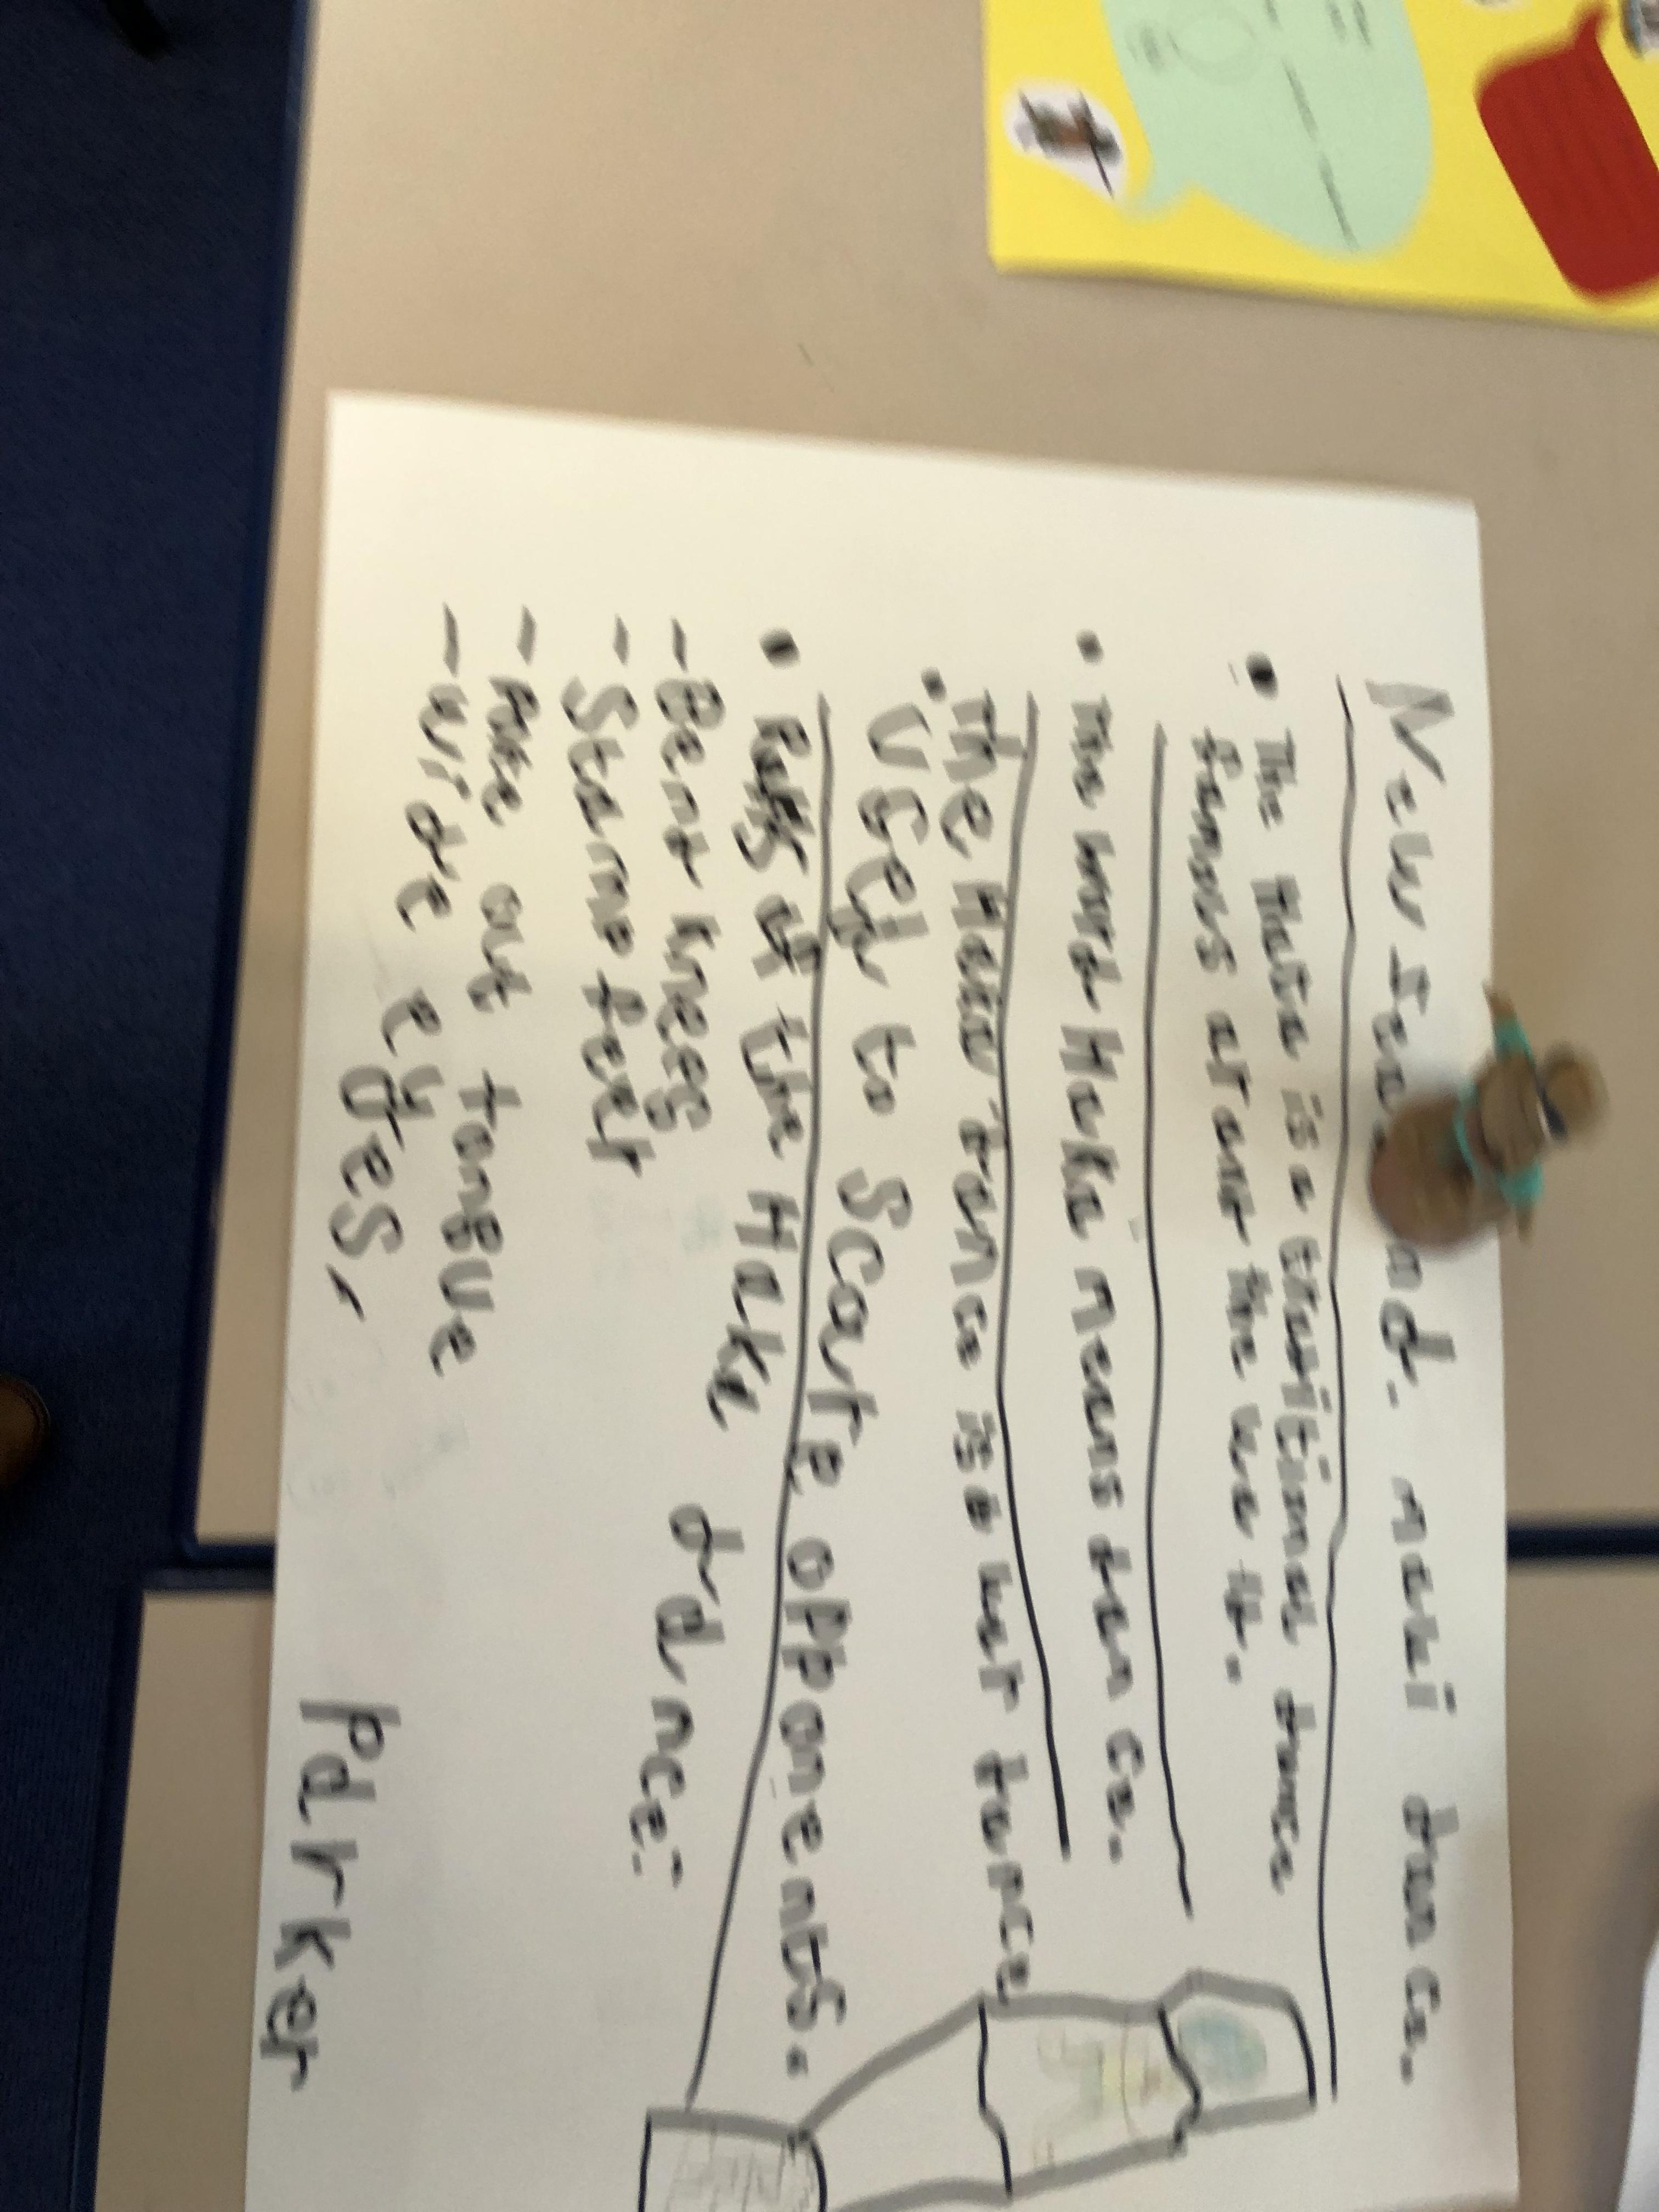 New nd. maui dance.
• The Haka is a traditional dance
famous around the
• The word Haka means dance.
• The Haka dance is a war dance
Used to Scare opponents.
• of the Haka dance:
- Bent knees
- Stamp feet
- out tongue
- wide eyes,
Parker